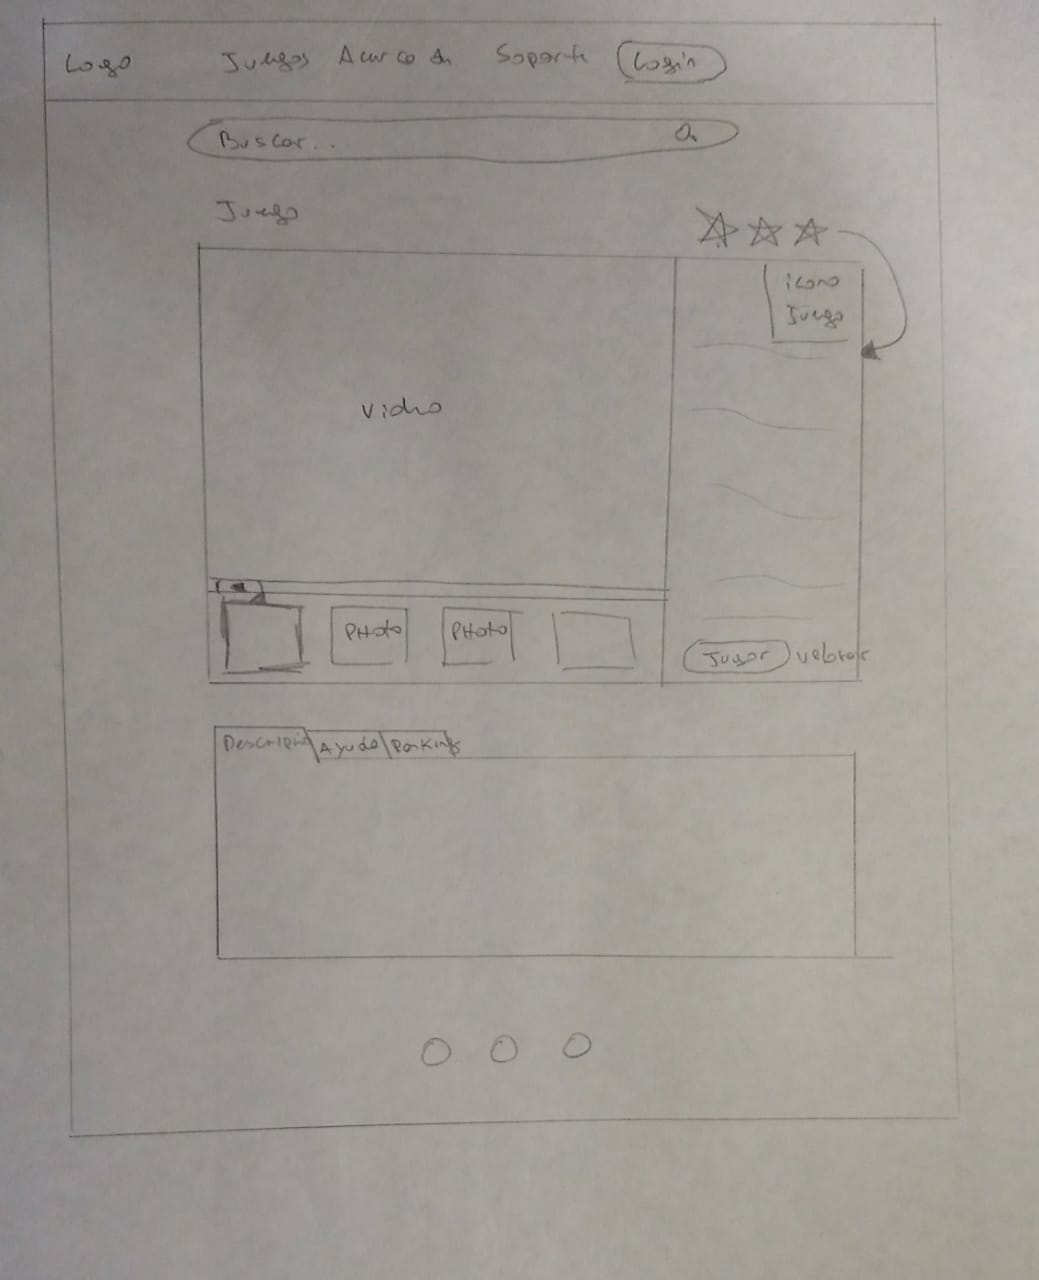 Logo Juegos Acerca de Soporte Login
Buscar..
Juego
icono
Juego
Video
PHoto PHoto
Jugar valorar
Descripció Ayuda Ranking